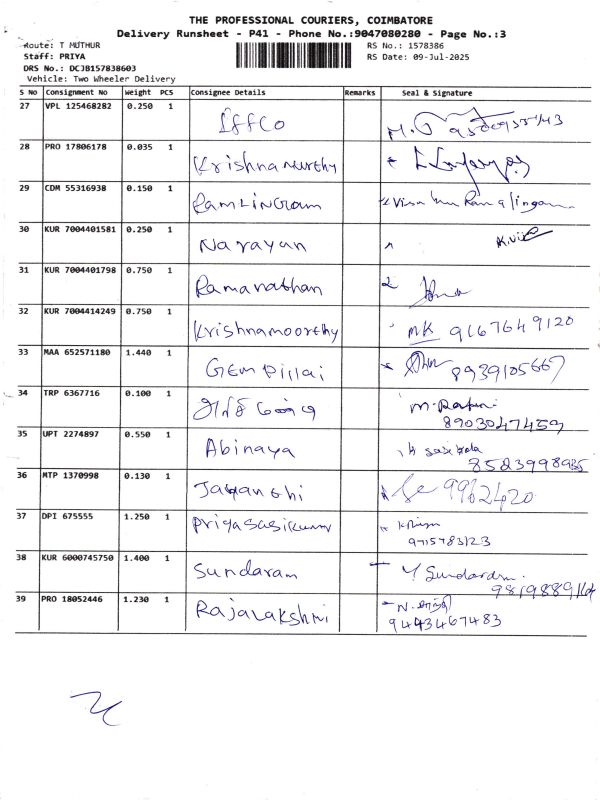 THE PROFESSIONAL COURIERS, COIMBATORE
Delivery Runsheet - P41 - Phone No.:9047080280 - Page No.:3
Route: T MUTHUR
RS No.: 1578386
Staff: PRIYA
RS Date: 09-Jul-2025
DRS No.: DCJB157838603
Vehicle: Two Wheeler Delivery
S No Consignment No Weight PCS Consignee Details Remarks Seal & Signature
27 VPL 125468282 0.250 1 Iffco
28 PRO 17806178 0.035 1 Krishnamurthy
29 CDM 55316938 0.150 1 RamLinGram
30 KUR 7004401581 0.250 1 Narayan
31 KUR 7004401798 0.750 1 Ramanathan
32 KUR 7004414249 0.750 1 Krishnamoorthy MK 9167649120
33 MAA 652571180 1.440 1 GEM Pillai 8939105667
34 TRP 6367716 0.100 1 M. 8903047459
35 UPT 2274897 0.550 1 Abinaya
8523998935
36 MTP 1370998 0.130 1 Jayanthi 9962420
37 DPI 675555 1.250 1 Priyasasikumar
9715783123
38 KUR 6000745750 1.400 1 Sundaram Y Sundaram.
39 PRO 18052446 1.230 1 Rajalakshmi N.
9443467483